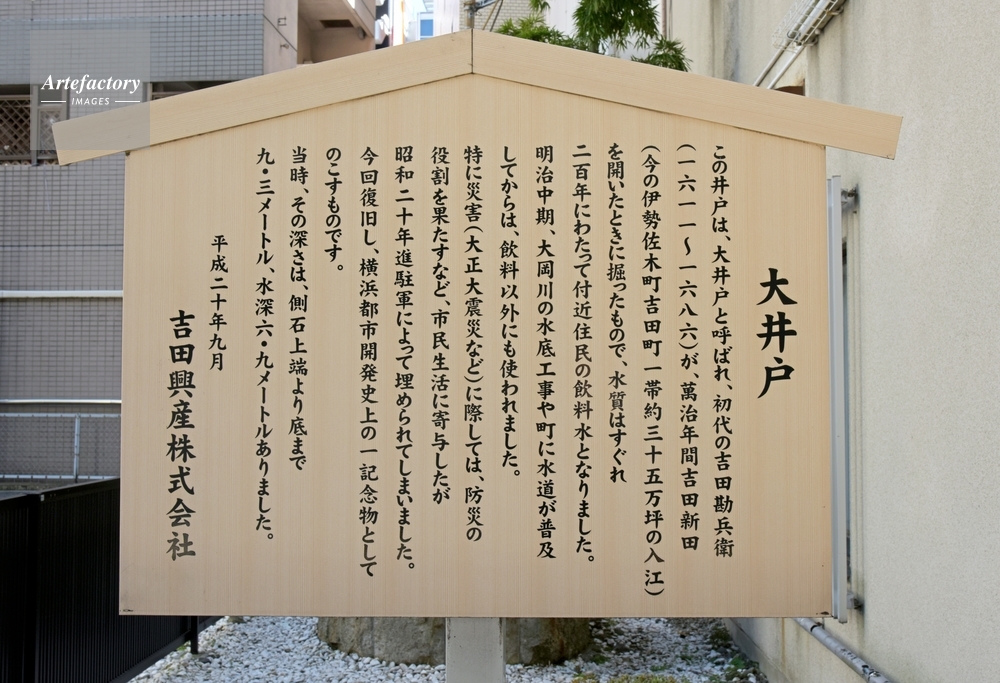 大井戸
この井戸は、大井戸と呼ばれ、初代の吉田勘兵衛
(一六一一～一六八六)が、萬治年間吉田新田
(今の伊勢佐木町吉田町一帯約三十五万坪の入江)
を開いたときに掘ったもので、水質はすぐれ
二百年にわたって付近住民の飲料水となりました。
明治中期、大岡川の水底工事や町に水道が普及
してからは、飲料以外にも使われました。
特に災害(大正大震災など)に際しては、防災の
役割を果たすなど、市民生活に寄与したが
昭和二十年進駐軍によって埋められてしまいました。
今回復旧し、横浜都市開発史上の一記念物として
のこすものです。
当時、その深さは、側石上端より底まで
九・三メートル、水深六・九メートルありました。
平成二十年九月
吉田興産株式会社
Artefactory
IMAGES